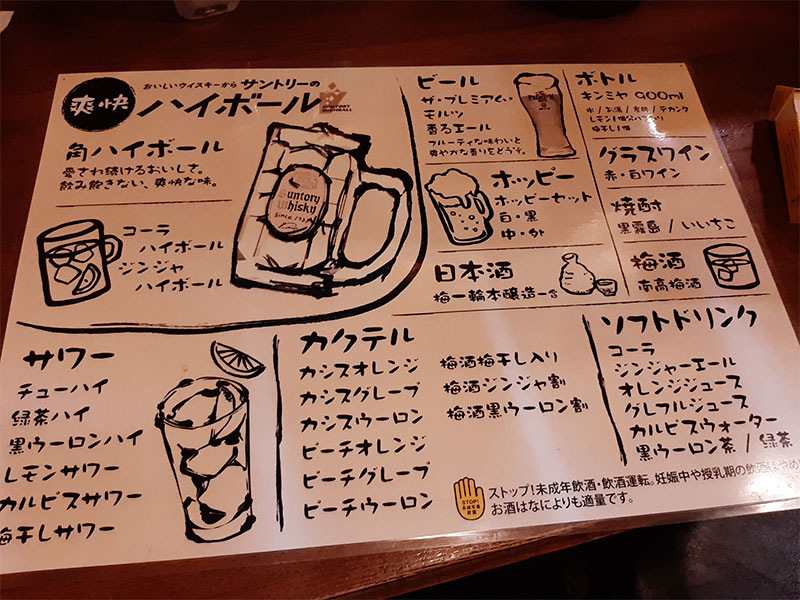 爽快
おいしいウイスキーから サントリーの
ハイボール
角ハイボール
愛され続けるおいしさ。
飲み飽きない、爽快な味。
Suntory
Whisky
SINCE 1937
コーラ
ハイボール
ジンジャ
ハイボール
ビール
ザ・プレミアム・
モルツ
香るエール
フルーティな味わいと
爽やかな香りをどうぞ。
ホッピー
ホッピーセット
白・黒
中・外
日本酒
梅一輪本醸造一合
ボトル
キンミヤ 900ml
梅干し1個
グラスワイン
赤・白ワイン
焼酎
黒霧島 / いいちこ
梅酒
南高梅酒
サワー
チューハイ
緑茶ハイ
黒ウーロンハイ
レモンサワー
カルピスサワー
梅干しサワー
カクテル
カシスオレンジ
カシスグレープ
カシスウーロン
ピーチオレンジ
ピーチグレープ
ピーチウーロン
梅酒梅干し入り
梅酒ジンジャ割
梅酒黒ウーロン割
ソフトドリンク
コーラ
ジンジャーエール
オレンジジュース
グレフルジュース
カルピスウォーター
黒ウーロン茶 / 緑茶
STOP!
ストップ!未成年飲酒・飲酒運転。妊娠中や授乳期の飲酒はやめ
お酒はなによりも適量です。